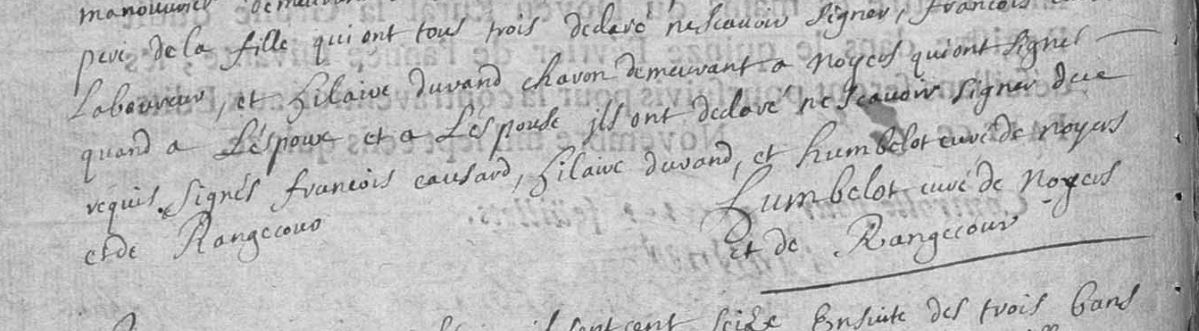 manouvrier
pere de la fille qui ont tous trois declaré ne scavoir signer, francois
Laboureur, et hilaire durand charon demeurant a Noyers qui ont signé
quand a L'époux et a L'éspouse ils ont declaré ne scavoir signer due
requis. signés francois causard, hilaire durand, et humbelot curé de noyers
et de Rangecour
humbelot curé de Noyers
et de Rangecour
sept cent seize Ensuite des trois bans